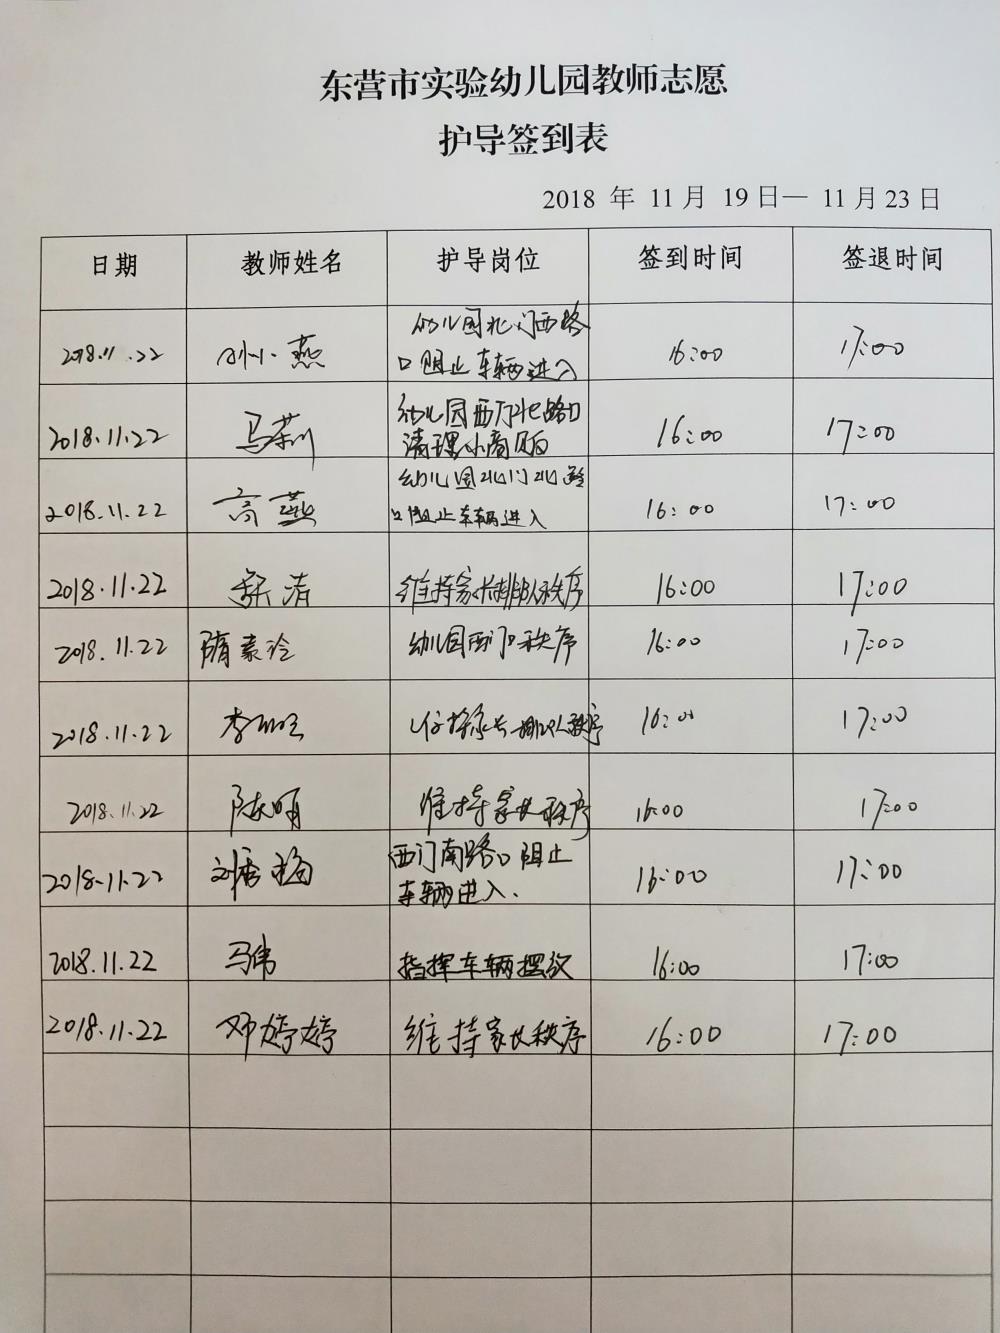 东营市实验幼儿园教师志愿
护导签到表
2018 年 11月 19日— 11月23日
日期 教师姓名 护导岗位 签到时间 签退时间
2018.11.22 小燕 幼儿园北门西路 16:00 17:00
口阻止车辆进入
2018.11.22 马莉 幼儿园西门北路口 16:00 17:00
清理小商贩
2018.11.22 高燕 幼儿园北门北路 16:00 17:00
口阻止车辆进入
2018.11.22 清 维持家长排队秩序 16:00 17:00
2018.11.22 隋素玲 幼儿园西门口秩序 16:00 17:00
2018.11.22 李 维持家长排队秩序 16:00 17:00
2018.11.22 陈明 维持家长秩序 16:00 17:00
2018.11.22 刘秀梅 西门南路口阻止 16:00 17:00
车辆进入.
2018.11.22 马伟 指挥车辆摆放 16:00 17:00
2018.11.22 邓婷婷 维持家长秩序 16:00 17:00